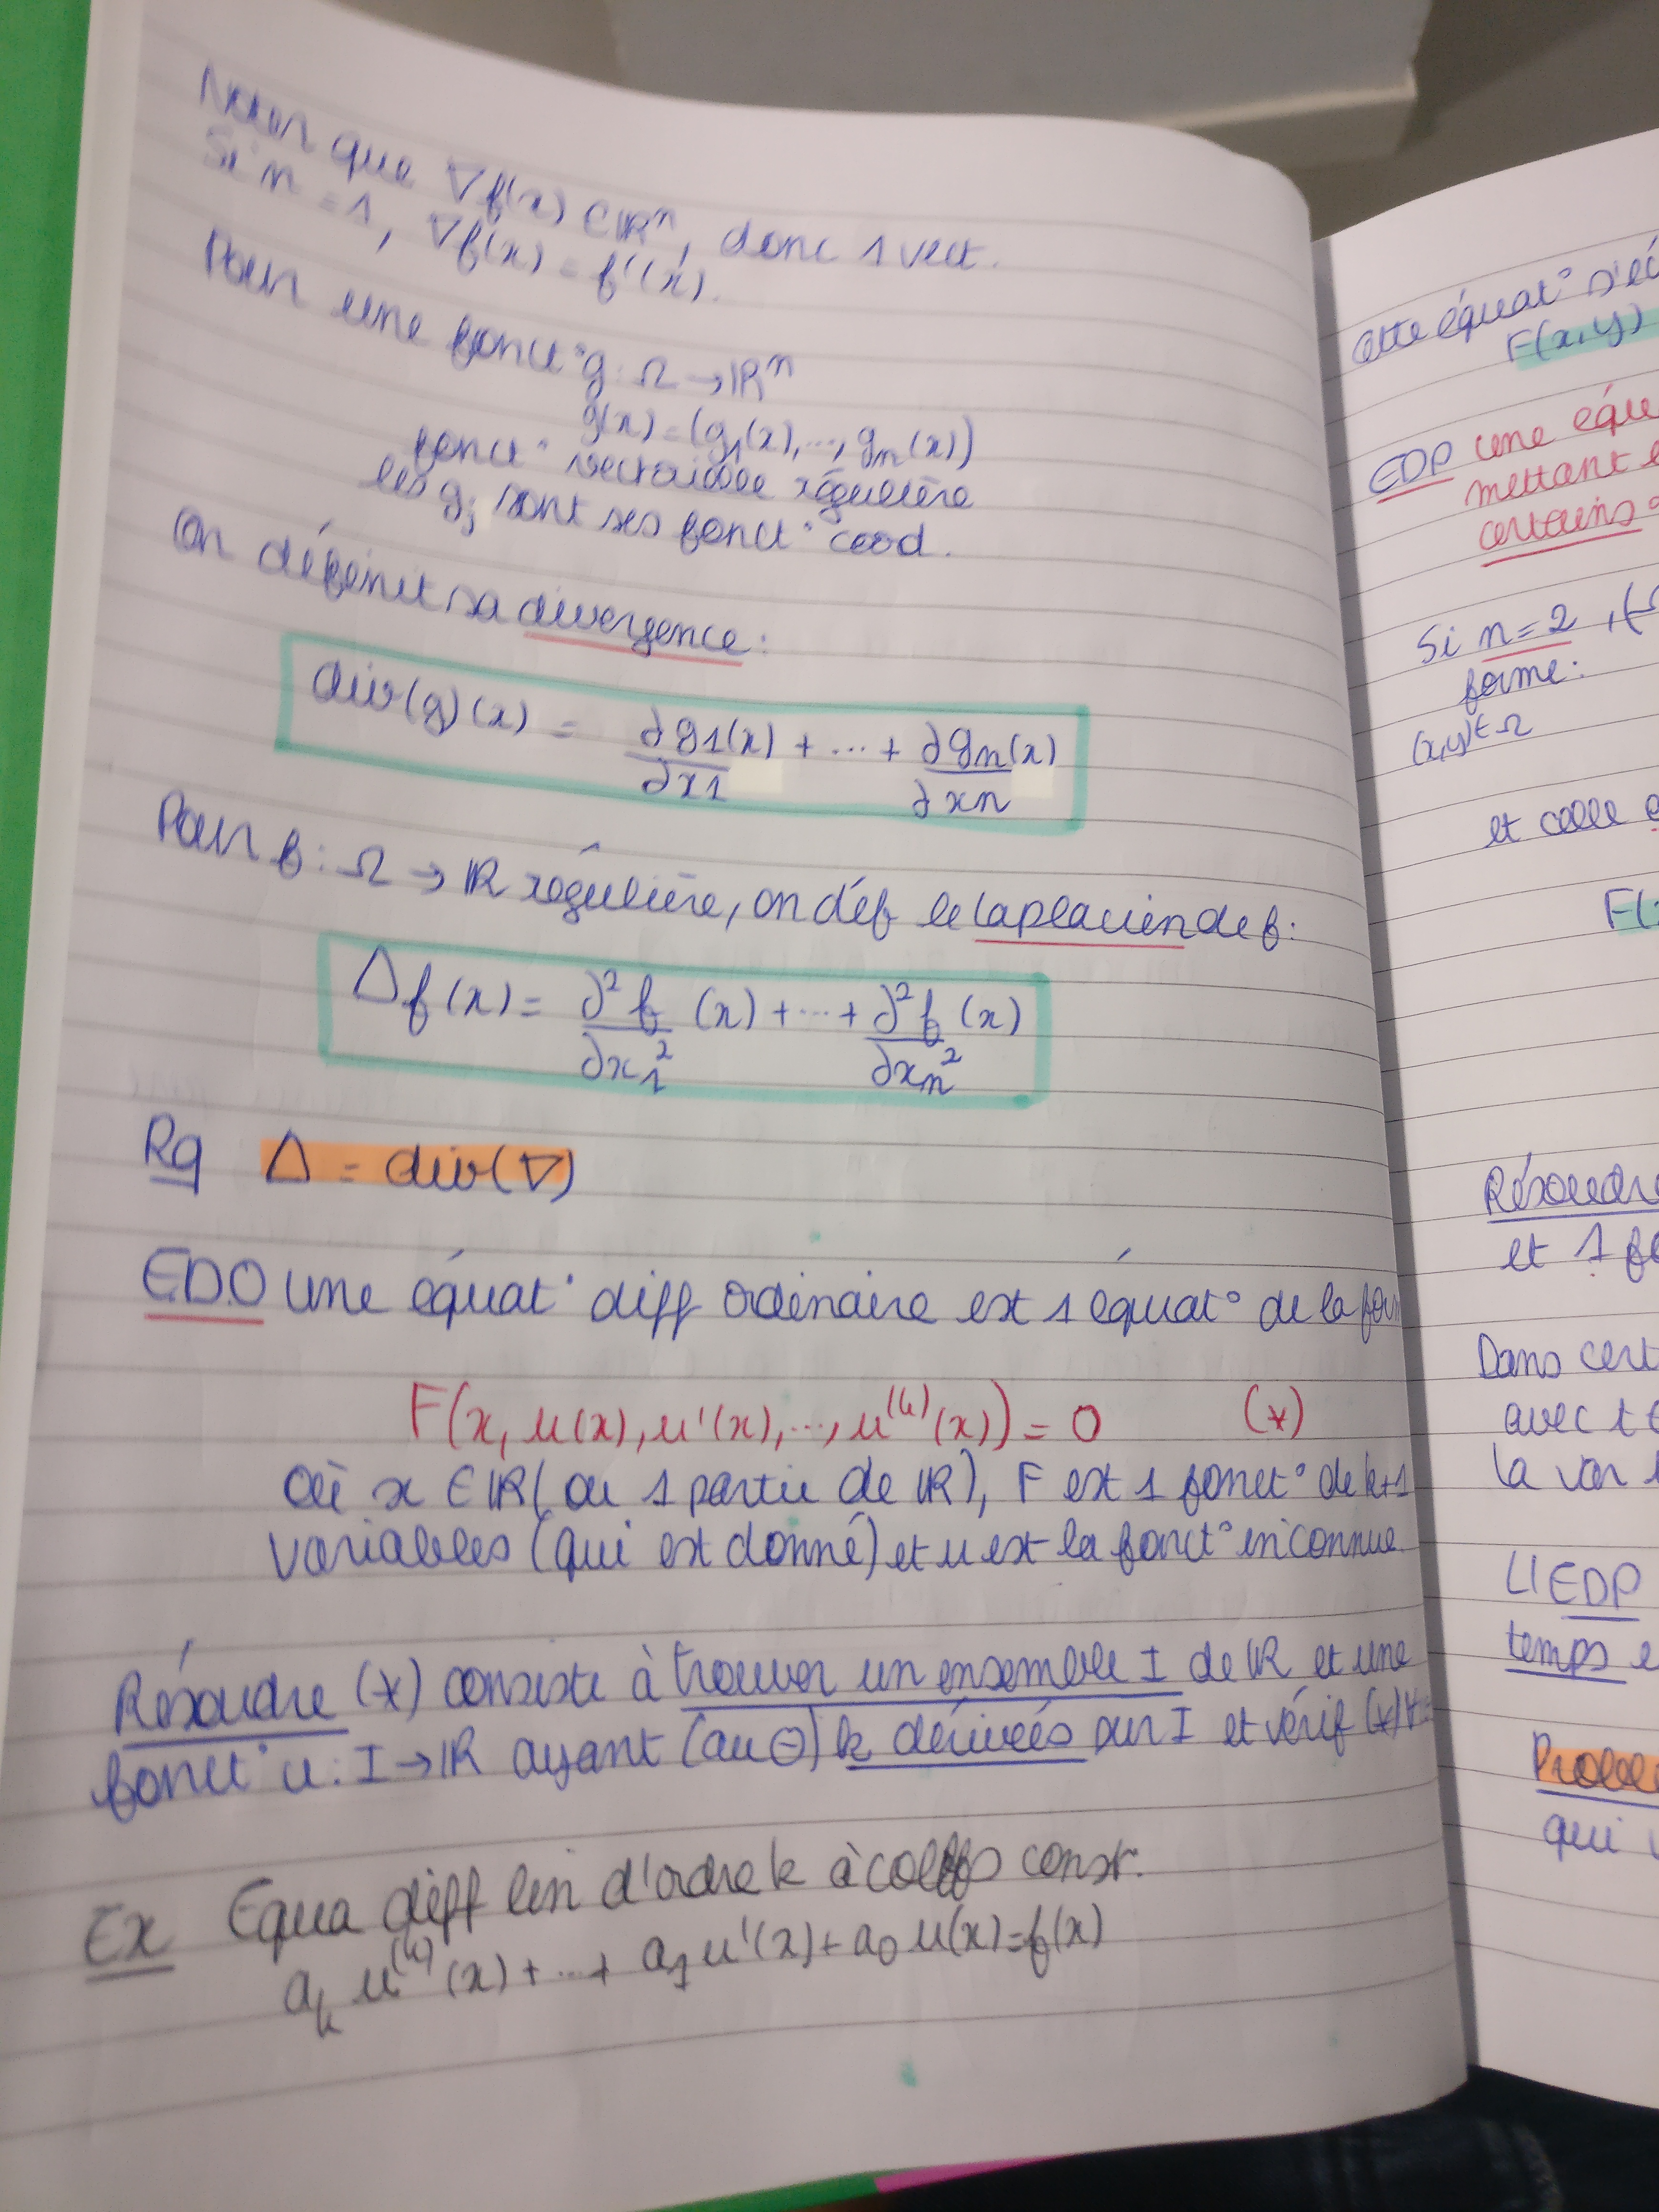 Noter que ∇f(x) ∈ ℝⁿ, donc 1 vect.
Si n = 1, ∇f(x) = f'(x).
Pour une fonct° g : Ω → ℝⁿ
g(x) = (g₁(x), ..., gₙ(x))
fonct° vectorielle régulière
les gⱼ sont ses fonct° coord.
On définit sa divergence :
div(g)(x) = ∂g1(x)/∂x1 + ... + ∂gn(x)/∂xn
Pour f : Ω → ℝ régulière, on déf le laplacien de f :
Δf(x) = ∂²f/∂x₁² (x) + ... + ∂²f/∂xₙ² (x)
Rq Δ = div(∇)
EDO une équat° diff ordinaire est 1 équat° de la form
F(x, u(x), u'(x), ..., u⁽ᵏ⁾(x)) = 0 (*)
où x ∈ ℝ (ou 1 partie de ℝ), F est 1 fonct° de k+1
variables (qui est donné) et u est la fonct° inconnue.
Résoudre (*) consiste à trouver un ensemble I de ℝ et une
fonct° u : I → ℝ ayant (au ⊖) k dérivées sur I et vérif (*) ∀
Ex Equa diff lin d'ordre k à coeffs const.
aₖ u⁽ᵏ⁾(x) + ... + a₁ u'(x) + a₀ u(x) = f(x)
Cette équat° s'éc
F(x,y)
EDP une équ
mettant e
certains
Si n = 2, (
forme :
(x,y) ∈ Ω
et celle
F(
Résoudre
et 1 fo
Dans cert
avec 1 t
la var
L'EDP
temps e
Problè
qui v